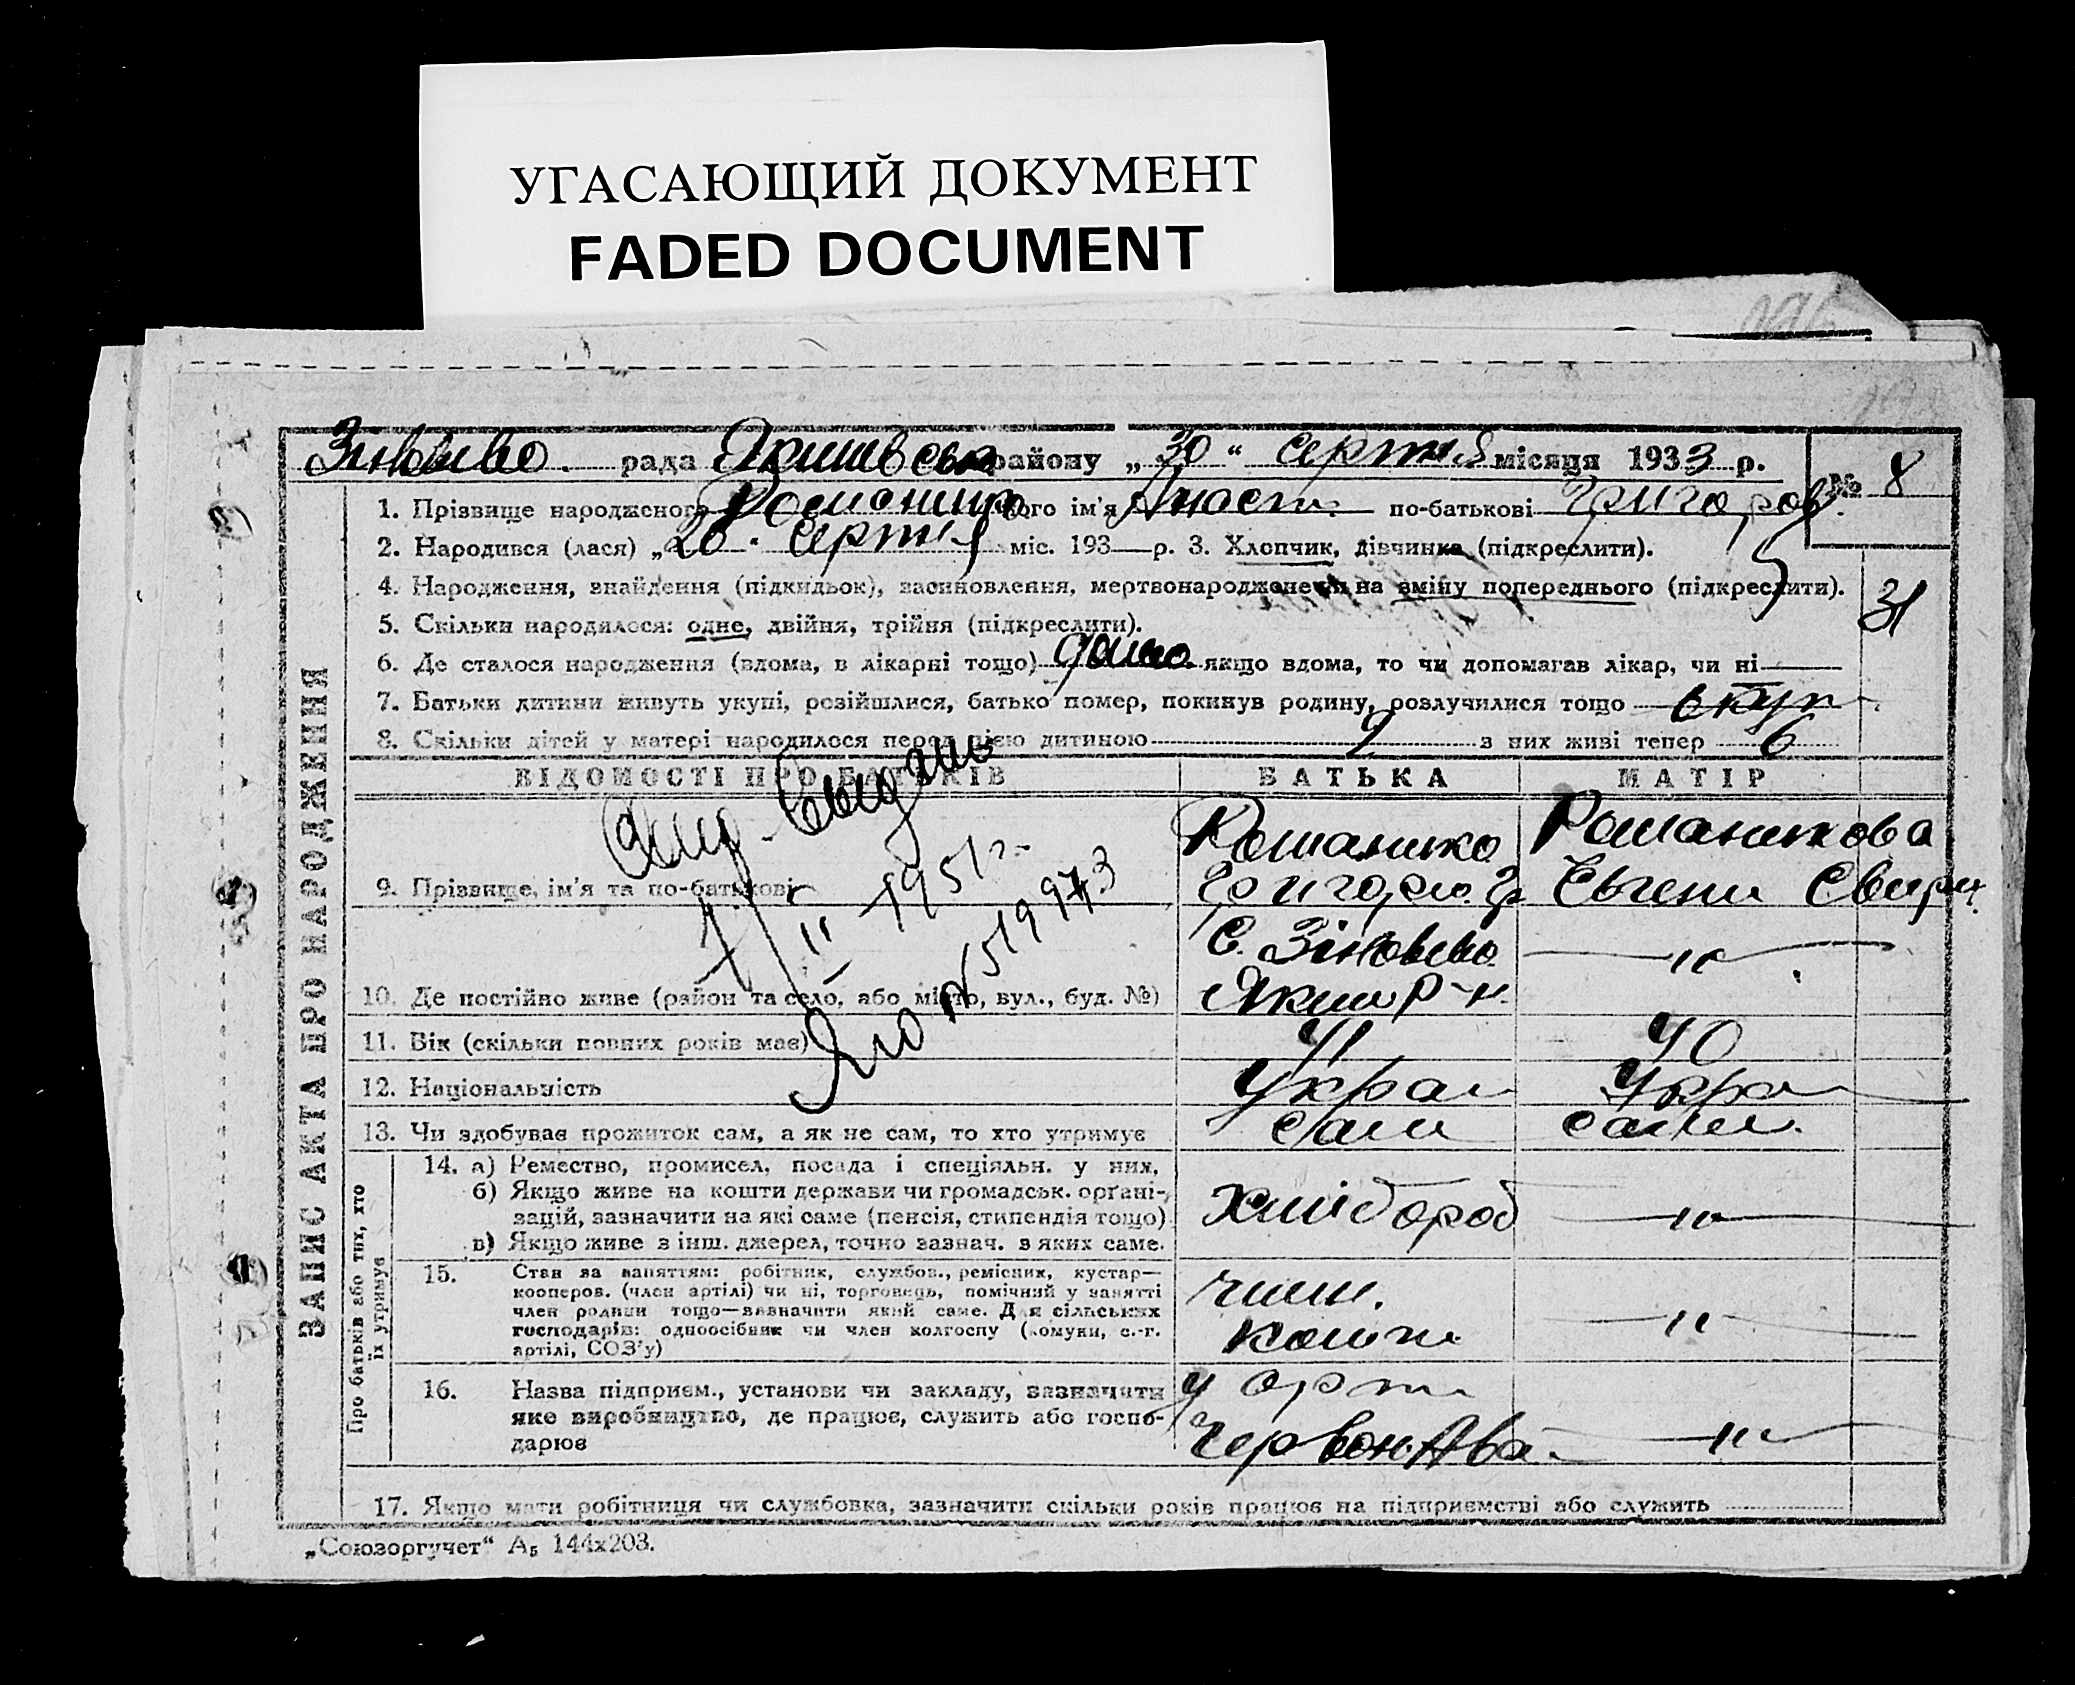 УГАСАЮЩИЙ ДОКУМЕНТ
FADED DOCUMENT
рада района „30“ серпня місяця 1933 р.
№ 8
1. Прізвище народженого його ім'я Анаст. по-батькові Григоров.
2. Народився (лася) „20“ серпня міс. 193—р. 3. Хлопчик, дівчинка (підкреслити).
4. Народження, знайдення (підкидьок), засиновлення, мертвонароджене чи на зміну попереднього (підкреслити).
31
5. Скільки народилося: одне, двійня, трійня (підкреслити).
6. Де сталося народження (вдома, в лікарні тощо) дома якщо вдома, то чи допомагав лікар, чи ні
7. Батьки дитини живуть укупі, розійшлися, батько помер, покинув родину, розлучилися тощо вкуп
8. Скільки дітей у матері народилося перед цією дитиною з них живі тепер 6
ВІДОМОСТІ ПРО БАТЬКІВ БАТЬКА МАТІР
Романико Романикова
9. Прізвище, ім'я та по-батькові Григорію Гр Євгени
II 1951 г.
N 519973
С. Зіновьево —„—
10. Де постійно живе (район та село, або місто, вул., буд. №) Яким р-н.
11. Вік (скільки повних років має) 41 40
12. Національність Украи Укра
13. Чи здобуває прожиток сам, а як не сам, то хто утримує сам сама.
14. а) Ремество, промисел, посада і спеціяльн. у них.
б) Якщо живе на кошти держави чи громадськ. орґані-
зацій, зазначити на які саме (пенсія, стипендія тощо) Хліборов —„—
в) Якщо живе з інш. джерел, точно зазнач. з яких саме.
15. Стан за заняттям: робітник, службов., ремісник, кустар—
кооперов. (член артілі) чи ні, торговець, помічний у занятті
член родини тощо—зазначити який саме. Для сільських
господарів: одноосібник чи член колгоспу (комуни, с.-г.
артілі, СОЗ'у)
член. —„—
16. Назва підприєм., установи чи закладу, зазначити
яке виробництво, де працює, служить або госпо-
дарює
Червон —„—
17. Якщо мати робітниця чи службовка, зазначити скільки років працює на підприємстві або служить
ЗАПИС АКТА ПРО НАРОДЖЕННЯ
Про батьків або тих, хто
їх утримує
„Союзоргучет“ А₅ 144х203.